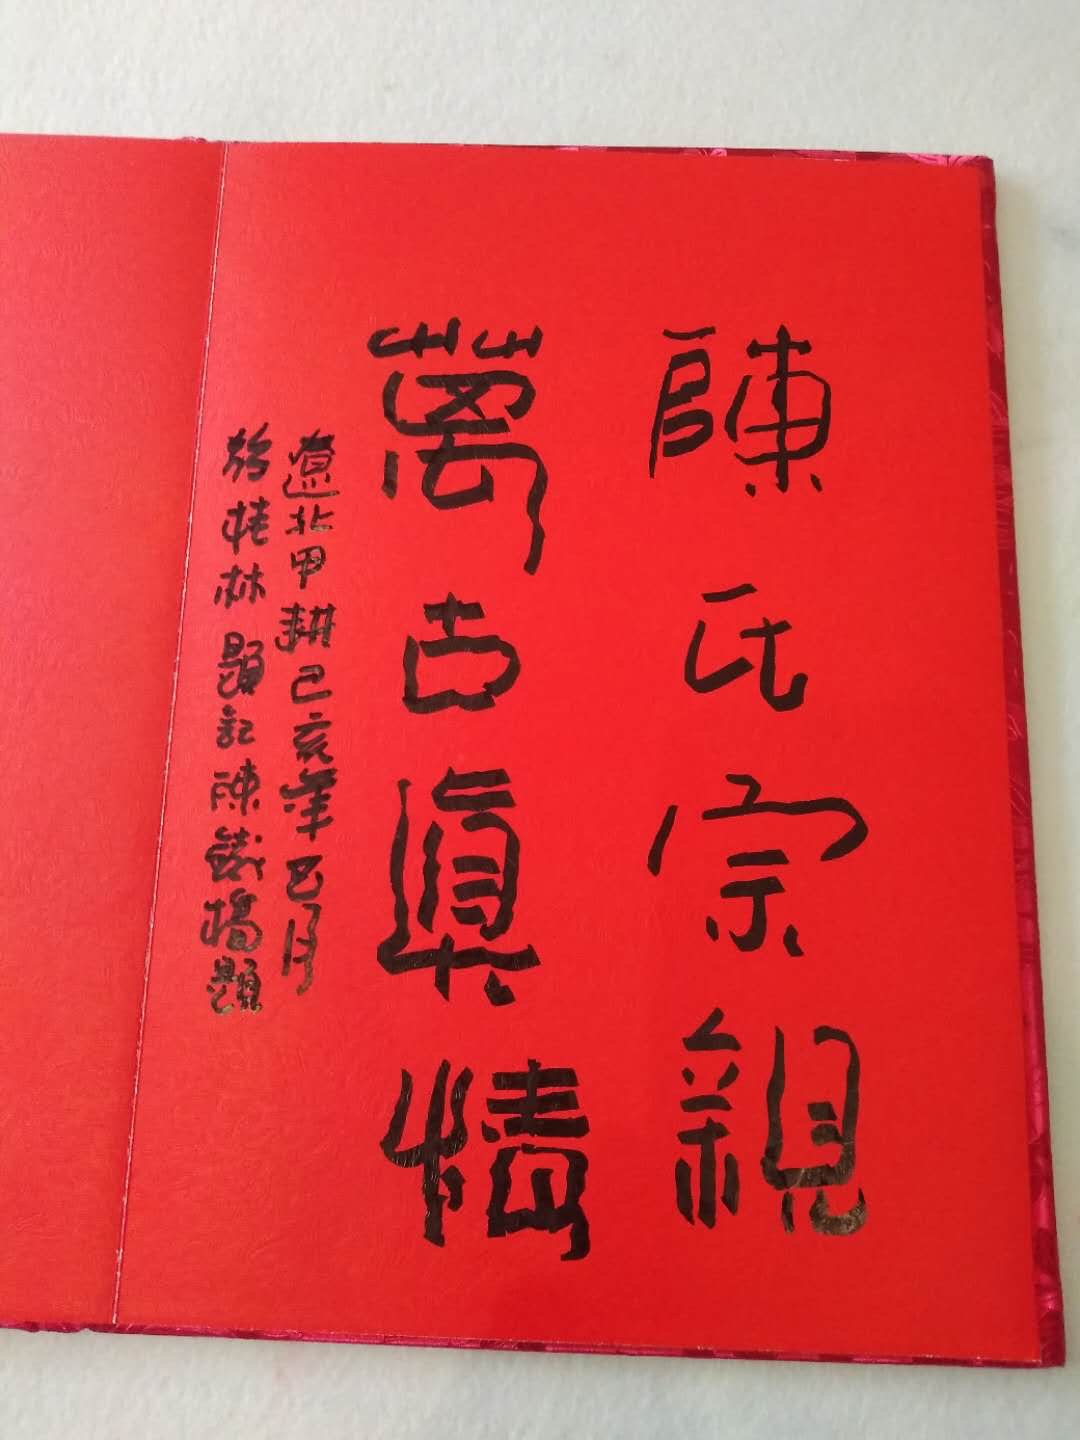 陳氏宗親
萬古真情
遼北甲耕己亥年五月
於桂林題記陳鐵楊題